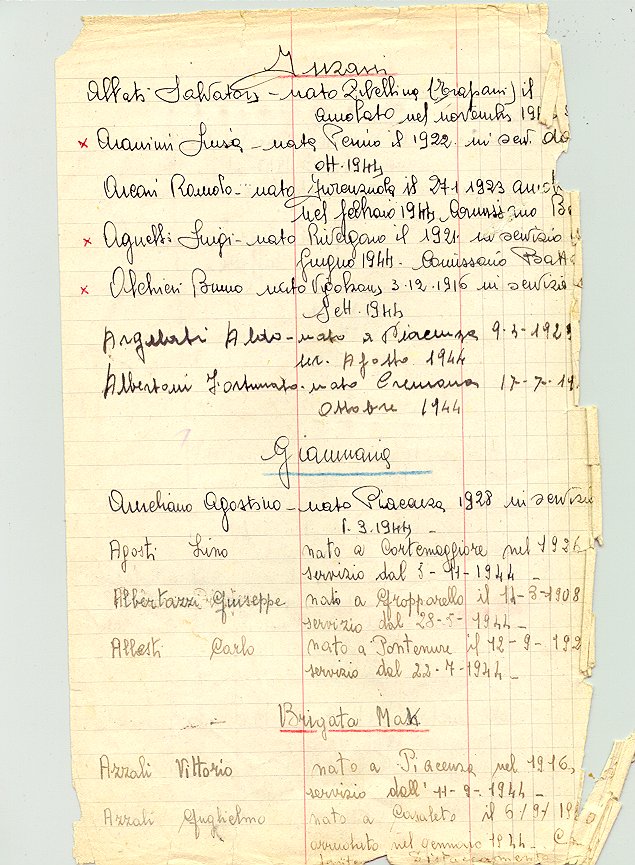 Inzani
Abbati Salvatore - nato Zibellina (Trapani) il
amolato nel novembre 191
x Aramini Luisa - nata Perino il 1922. in serv. da
ott. 1944
Arcani Romolo - nato Fiorenzuola il 27.1.1923
nel febbraio 1944 Comissario B
x Agnelli Luigi - nato Rivergaro il 1921. in servizio
Giugno 1944. Comissario Batt
x Bruno nato Vigolzone 3.12.1916 in servizio
Sett. 1944
Argellati Aldo - nato a Piacenza 9-3-192
ser. Agosto 1944
Albertoni Fortunato - nato Cremona 17-7-19
Ottobre 1944
Gianmaria
Aureliano Agostino - nato Piacenza 1928 in servizio
1.3.1944 -
Agosti Lino nato a Cortemaggiore nel 1926
servizio dal 5-11-1944 -
Albertazzi Giuseppe nato a Gropparello il 14-3-1908
servizio dal 28-5-1944 -
Allesti Carlo nato a Pontenure il 12-9-192
servizio dal 22-7-1944 -
Brigata Mak
Azzali Vittorio nato a Piacenza nel 1916,
servizio dall' 11-9-1944 -
Azzali Guglielmo nato a Casaleto il 6/9/19
arruolato nel gennaio 1944.
Distaccamento